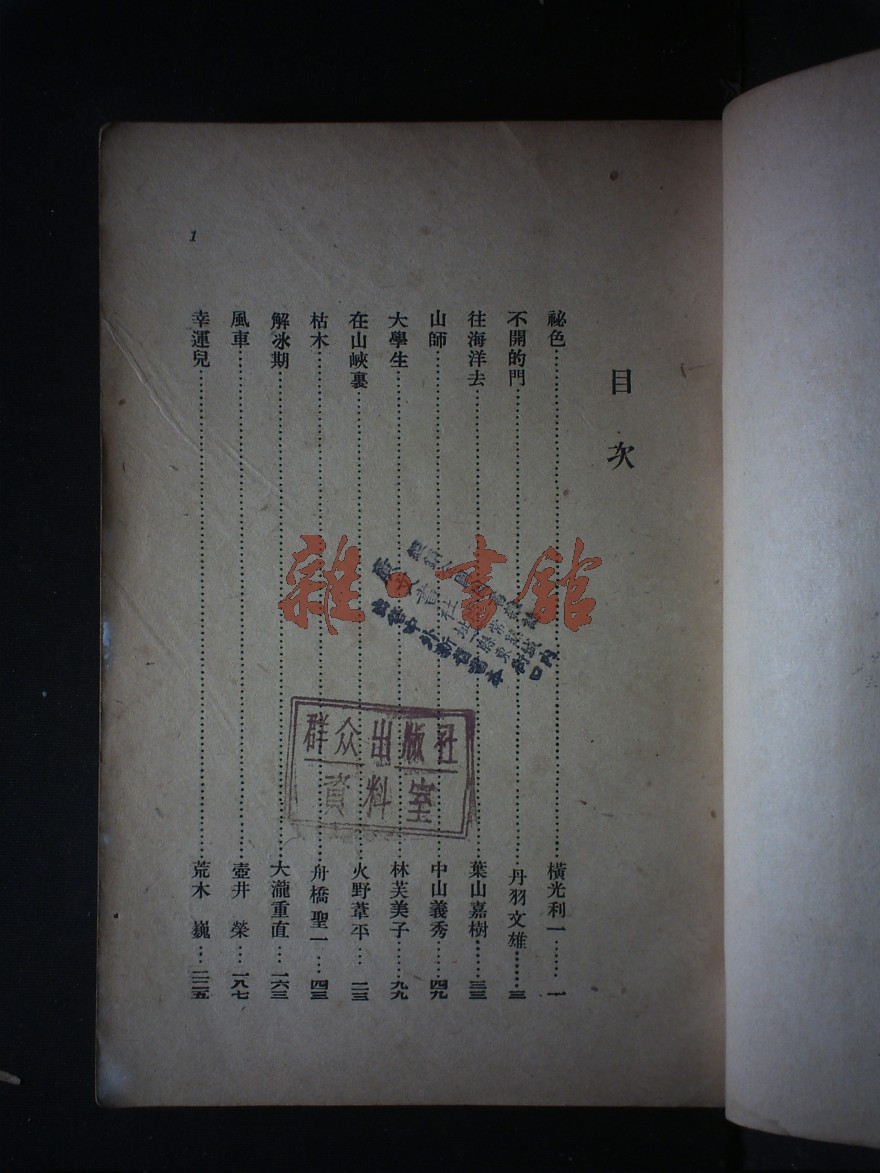 目次
祕色……一 橫光利一
不開的門……三 丹羽文雄
往海洋去……三三 葉山嘉樹
山師……四九 中山義秀
大學生……九九 林芙美子
在山峽裏……一二三 火野葦平
枯木……一四三 舟橋聖一
解冰期……一六三 大瀧重直
風車……一八七 壺井榮
幸運兒……二二五 荒木巍
1
雜·書館
群众出版社
資料室